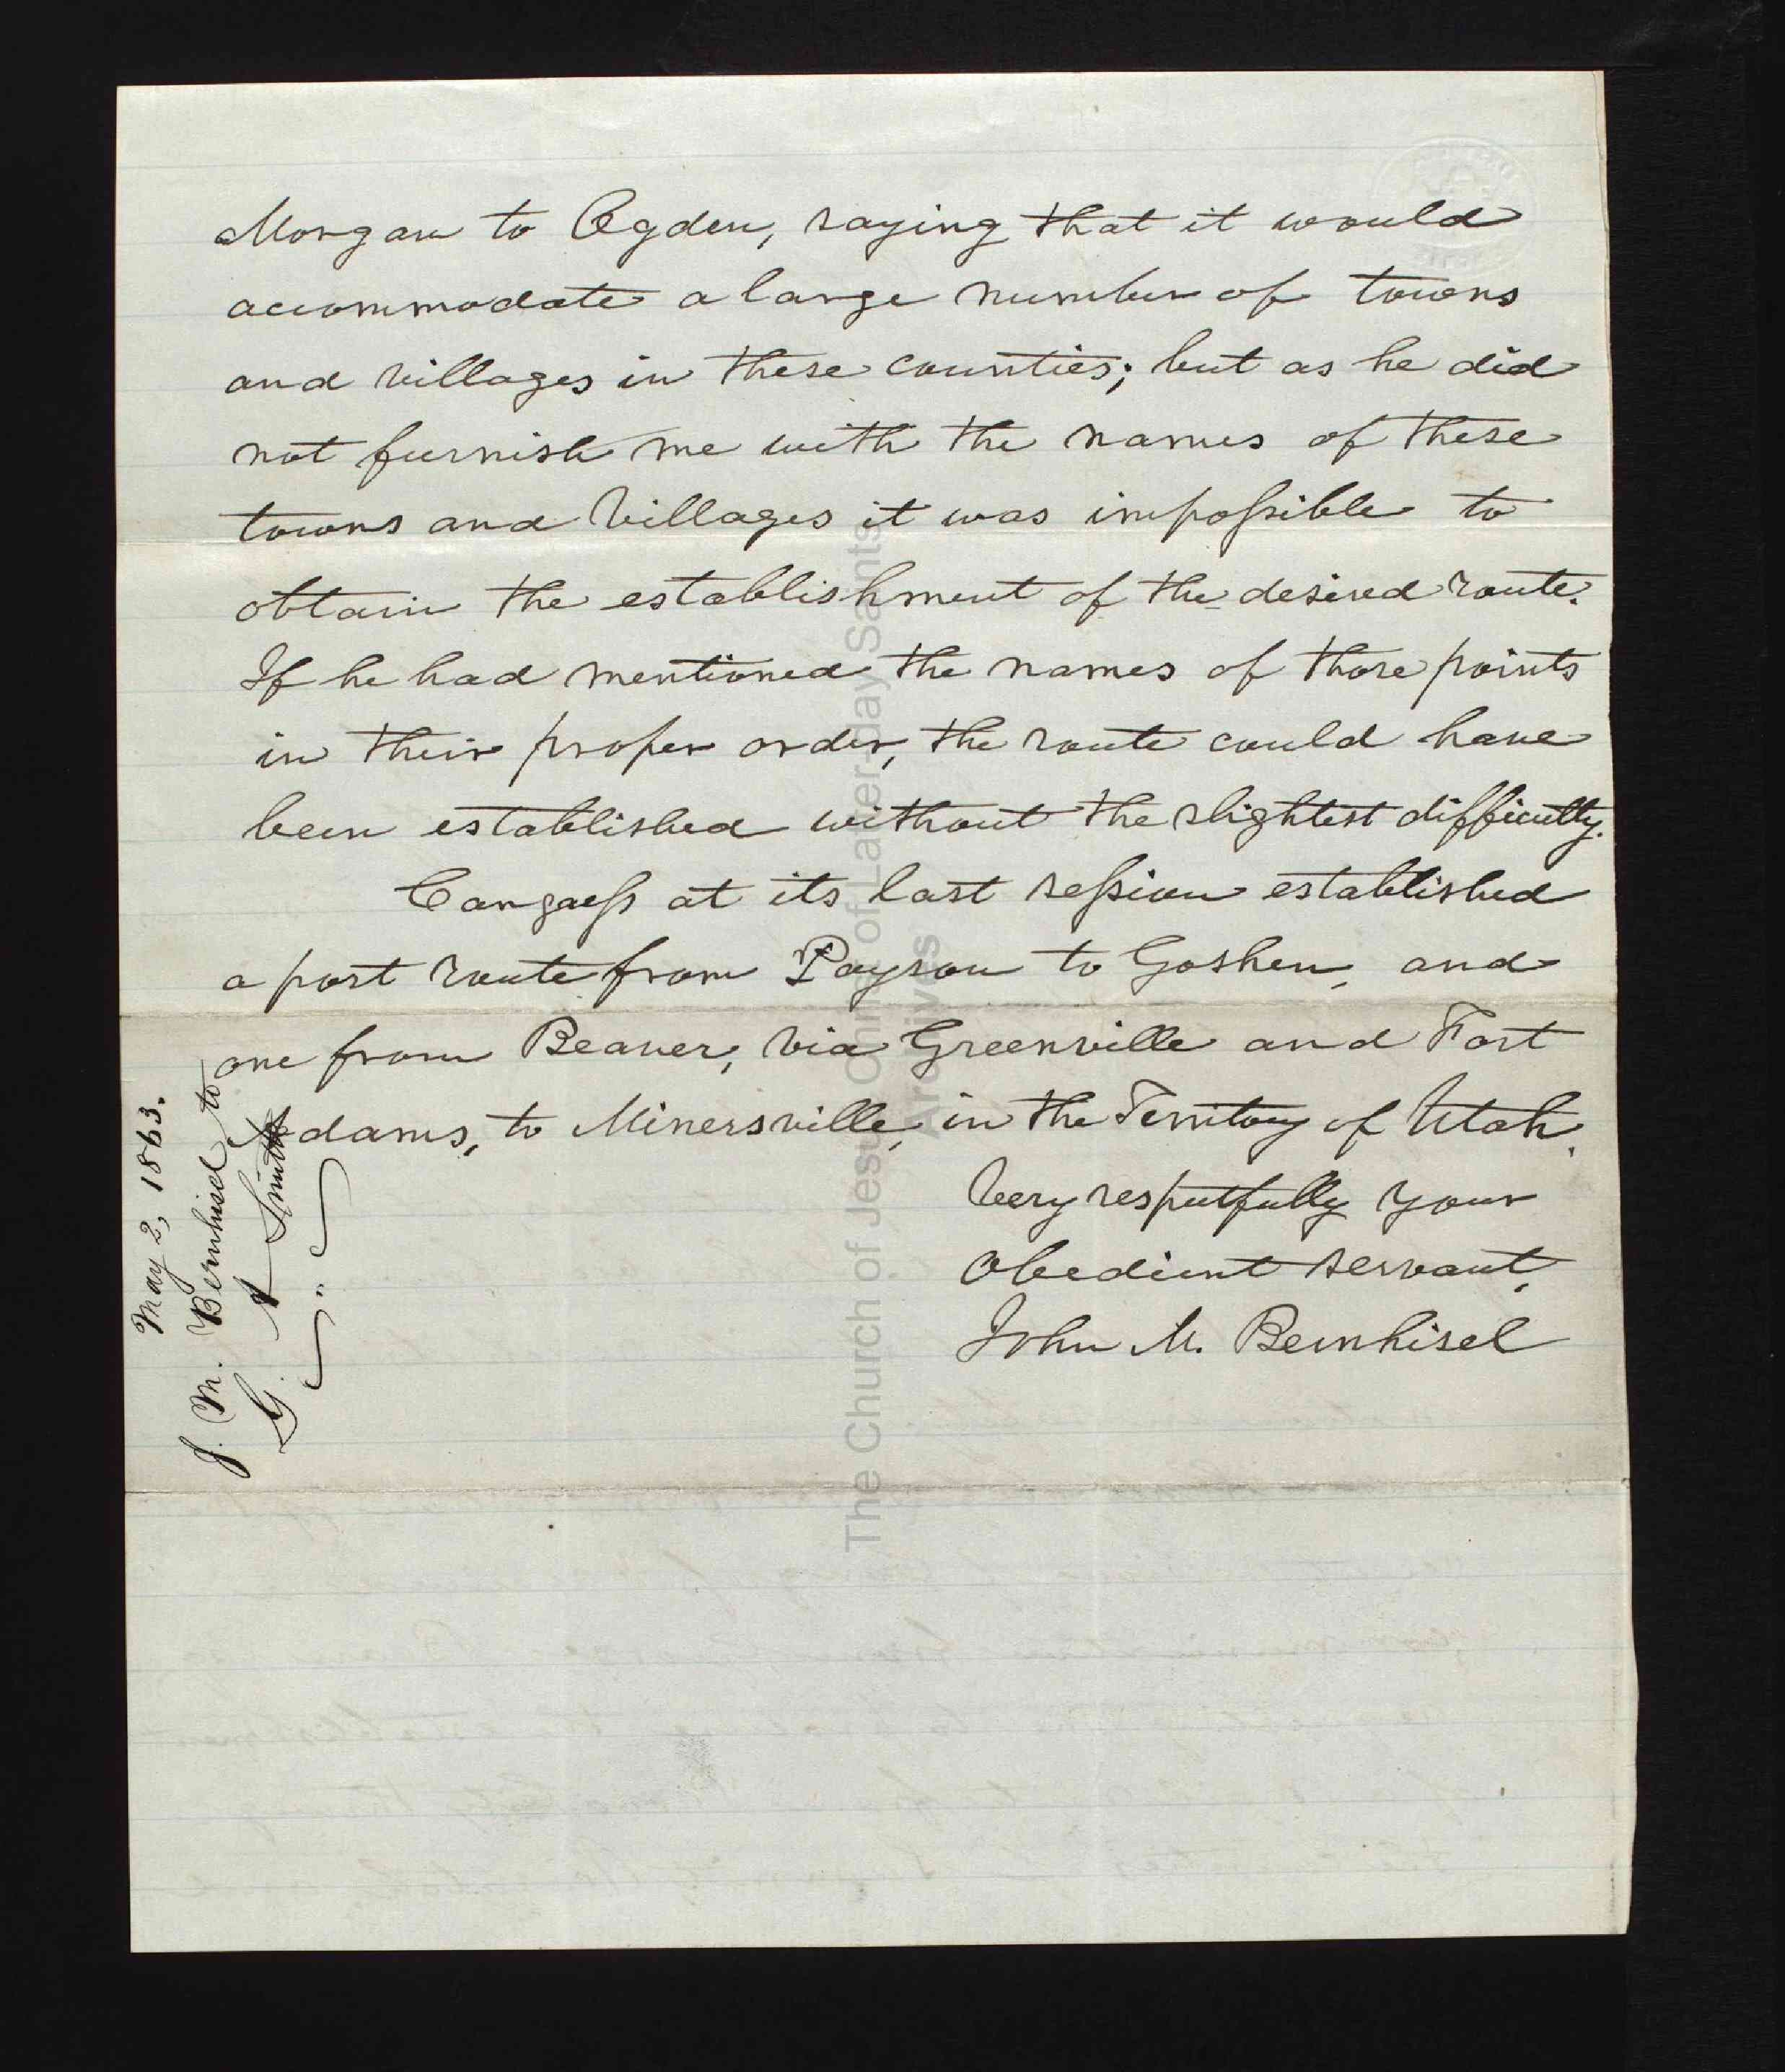 Morgan to Ogden, saying that it would
accommodate a large number of towns
and villages in these counties; but as he did
not furnish me with the names of these
towns and villages it was impossible to
obtain the establishment of the desired route.
If he had mentioned the names of those points
in their proper order, the route could have
been established without the slightest difficulty.
Congress at its last session established
a post route from Payson to Goshen, and
one from Beaver, via Greenville and Fort
Adams, to Minersville, in the Territory of Utah.
Very respectfully your
obedient servant,
John M. Bernhisel
May 2, 1863.
J. M. Bernhisel to
G. A Smith
The Church of Jesus Christ of Latter-day Saints
Archives